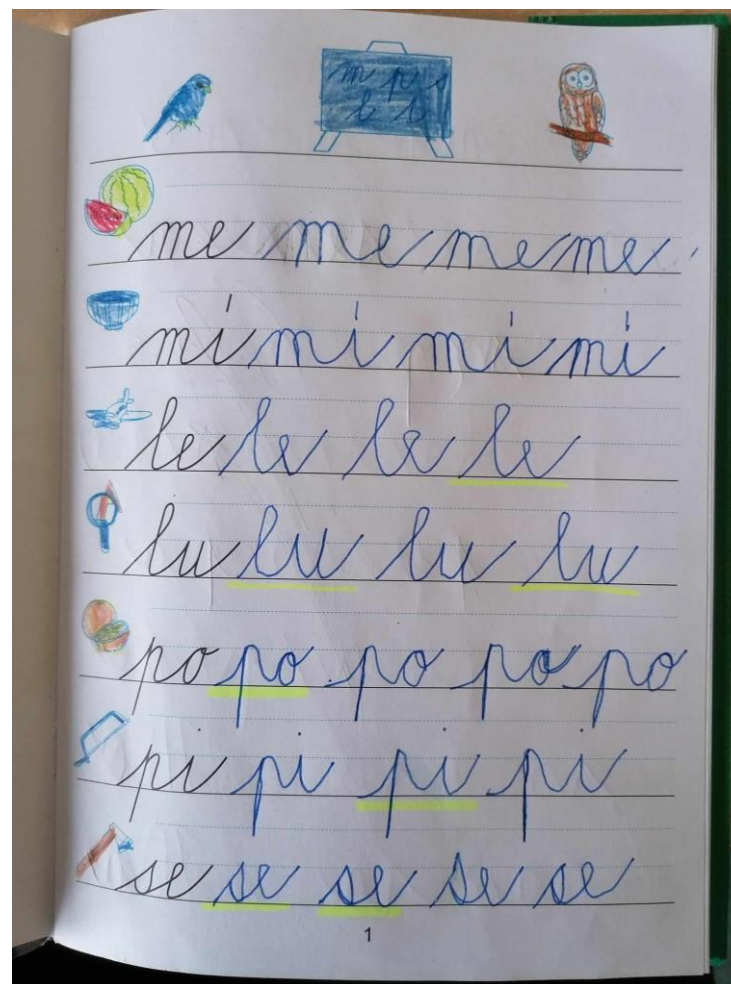 m p s
l
me me me me
mí mí mí mí
le le le le
lu lu lu lu
po po po po po
pi pi pi pi
se se se se se
1